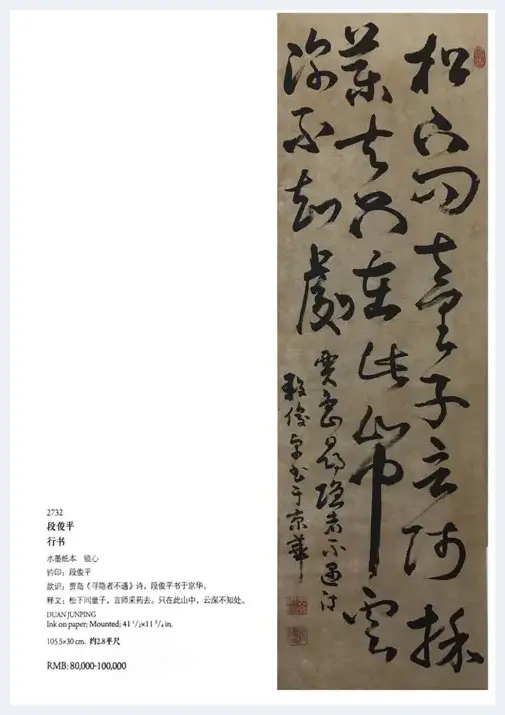 松下問童子言師採
藥去只在此山中雲
深不知處
賈島尋隱者不遇詩
段俊平书于京華
2732
段俊平
行书
水墨纸本 镜心
钤印：段俊平
款识：贾岛《寻隐者不遇》诗，段俊平书于京华。
释文：松下问童子，言师采药去。只在此山中，云深不知处。
DUAN JUNPING
Ink on paper; Mounted; 41 1/2×11 3/4 in.
105.5×30 cm. 约2.8平尺
RMB: 80,000-100,000